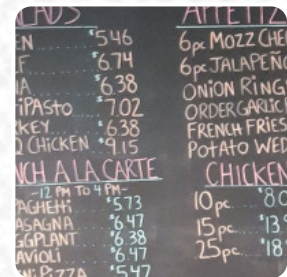 ALADS
EN $5.46
F $6.74
A $6.38
TIPASTO $7.02
RKEY $6.38
Q CHICKEN $9.15
NCH A LA CARTE
~12 PM TO 4 PM~
PAGHETTI $5.73
ASAGNA $6.47
GGPLANT $6.38
AVIOLI $6.47
NI PIZZA $5.47
APPETIZ
6pc MOZZ CHEE
6pc JALAPEÑO
ONION RINGS
ORDER GARLIC
FRENCH FRIES
POTATO WED
CHICKEN
10 pc. $8.0
15 pc. $13.9
25 pc. $18